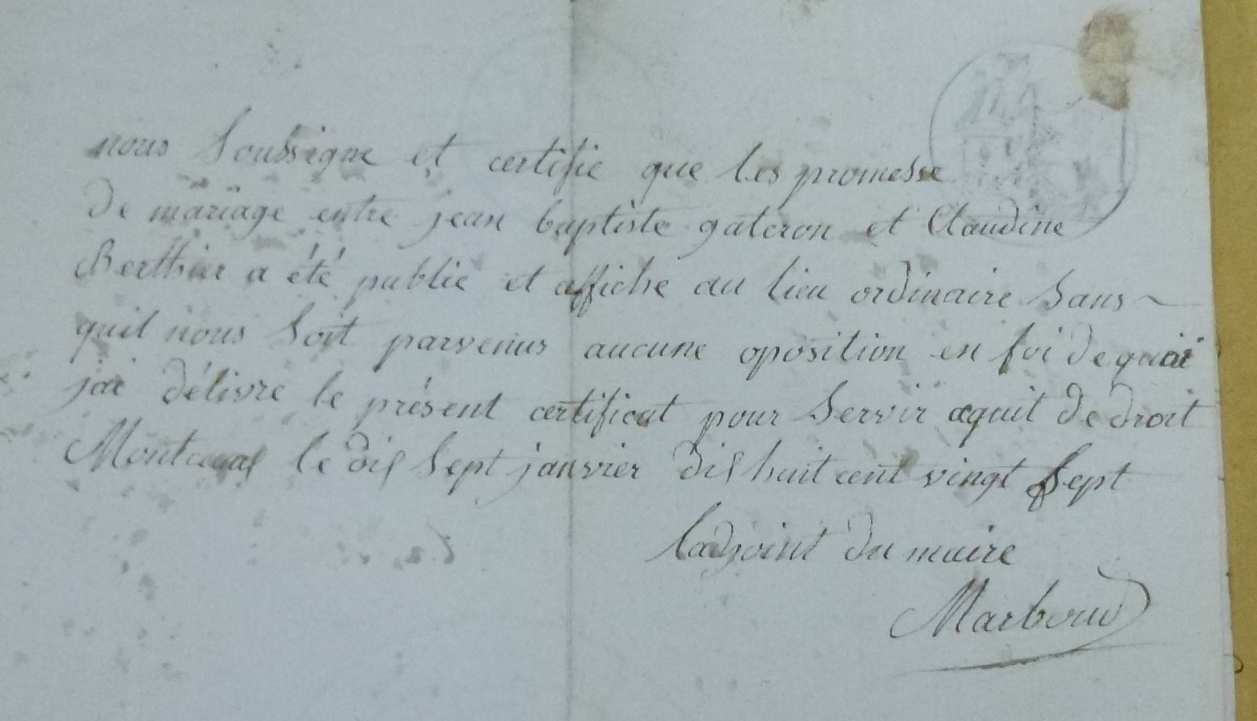 nous Soussigne et certifie que les promesse
de mariage entre jean baptiste gateron et Claudine
Berthier a été publie et affiche au lieu ordinaire Sans
quil nous Soit parvenus aucune oposition en foi de quoi
jai délivré le présent certificat pour Servir aquit de droit
le dis Sept janvier dis huit cent vingt Sept
ladjoint du maire
Marboud